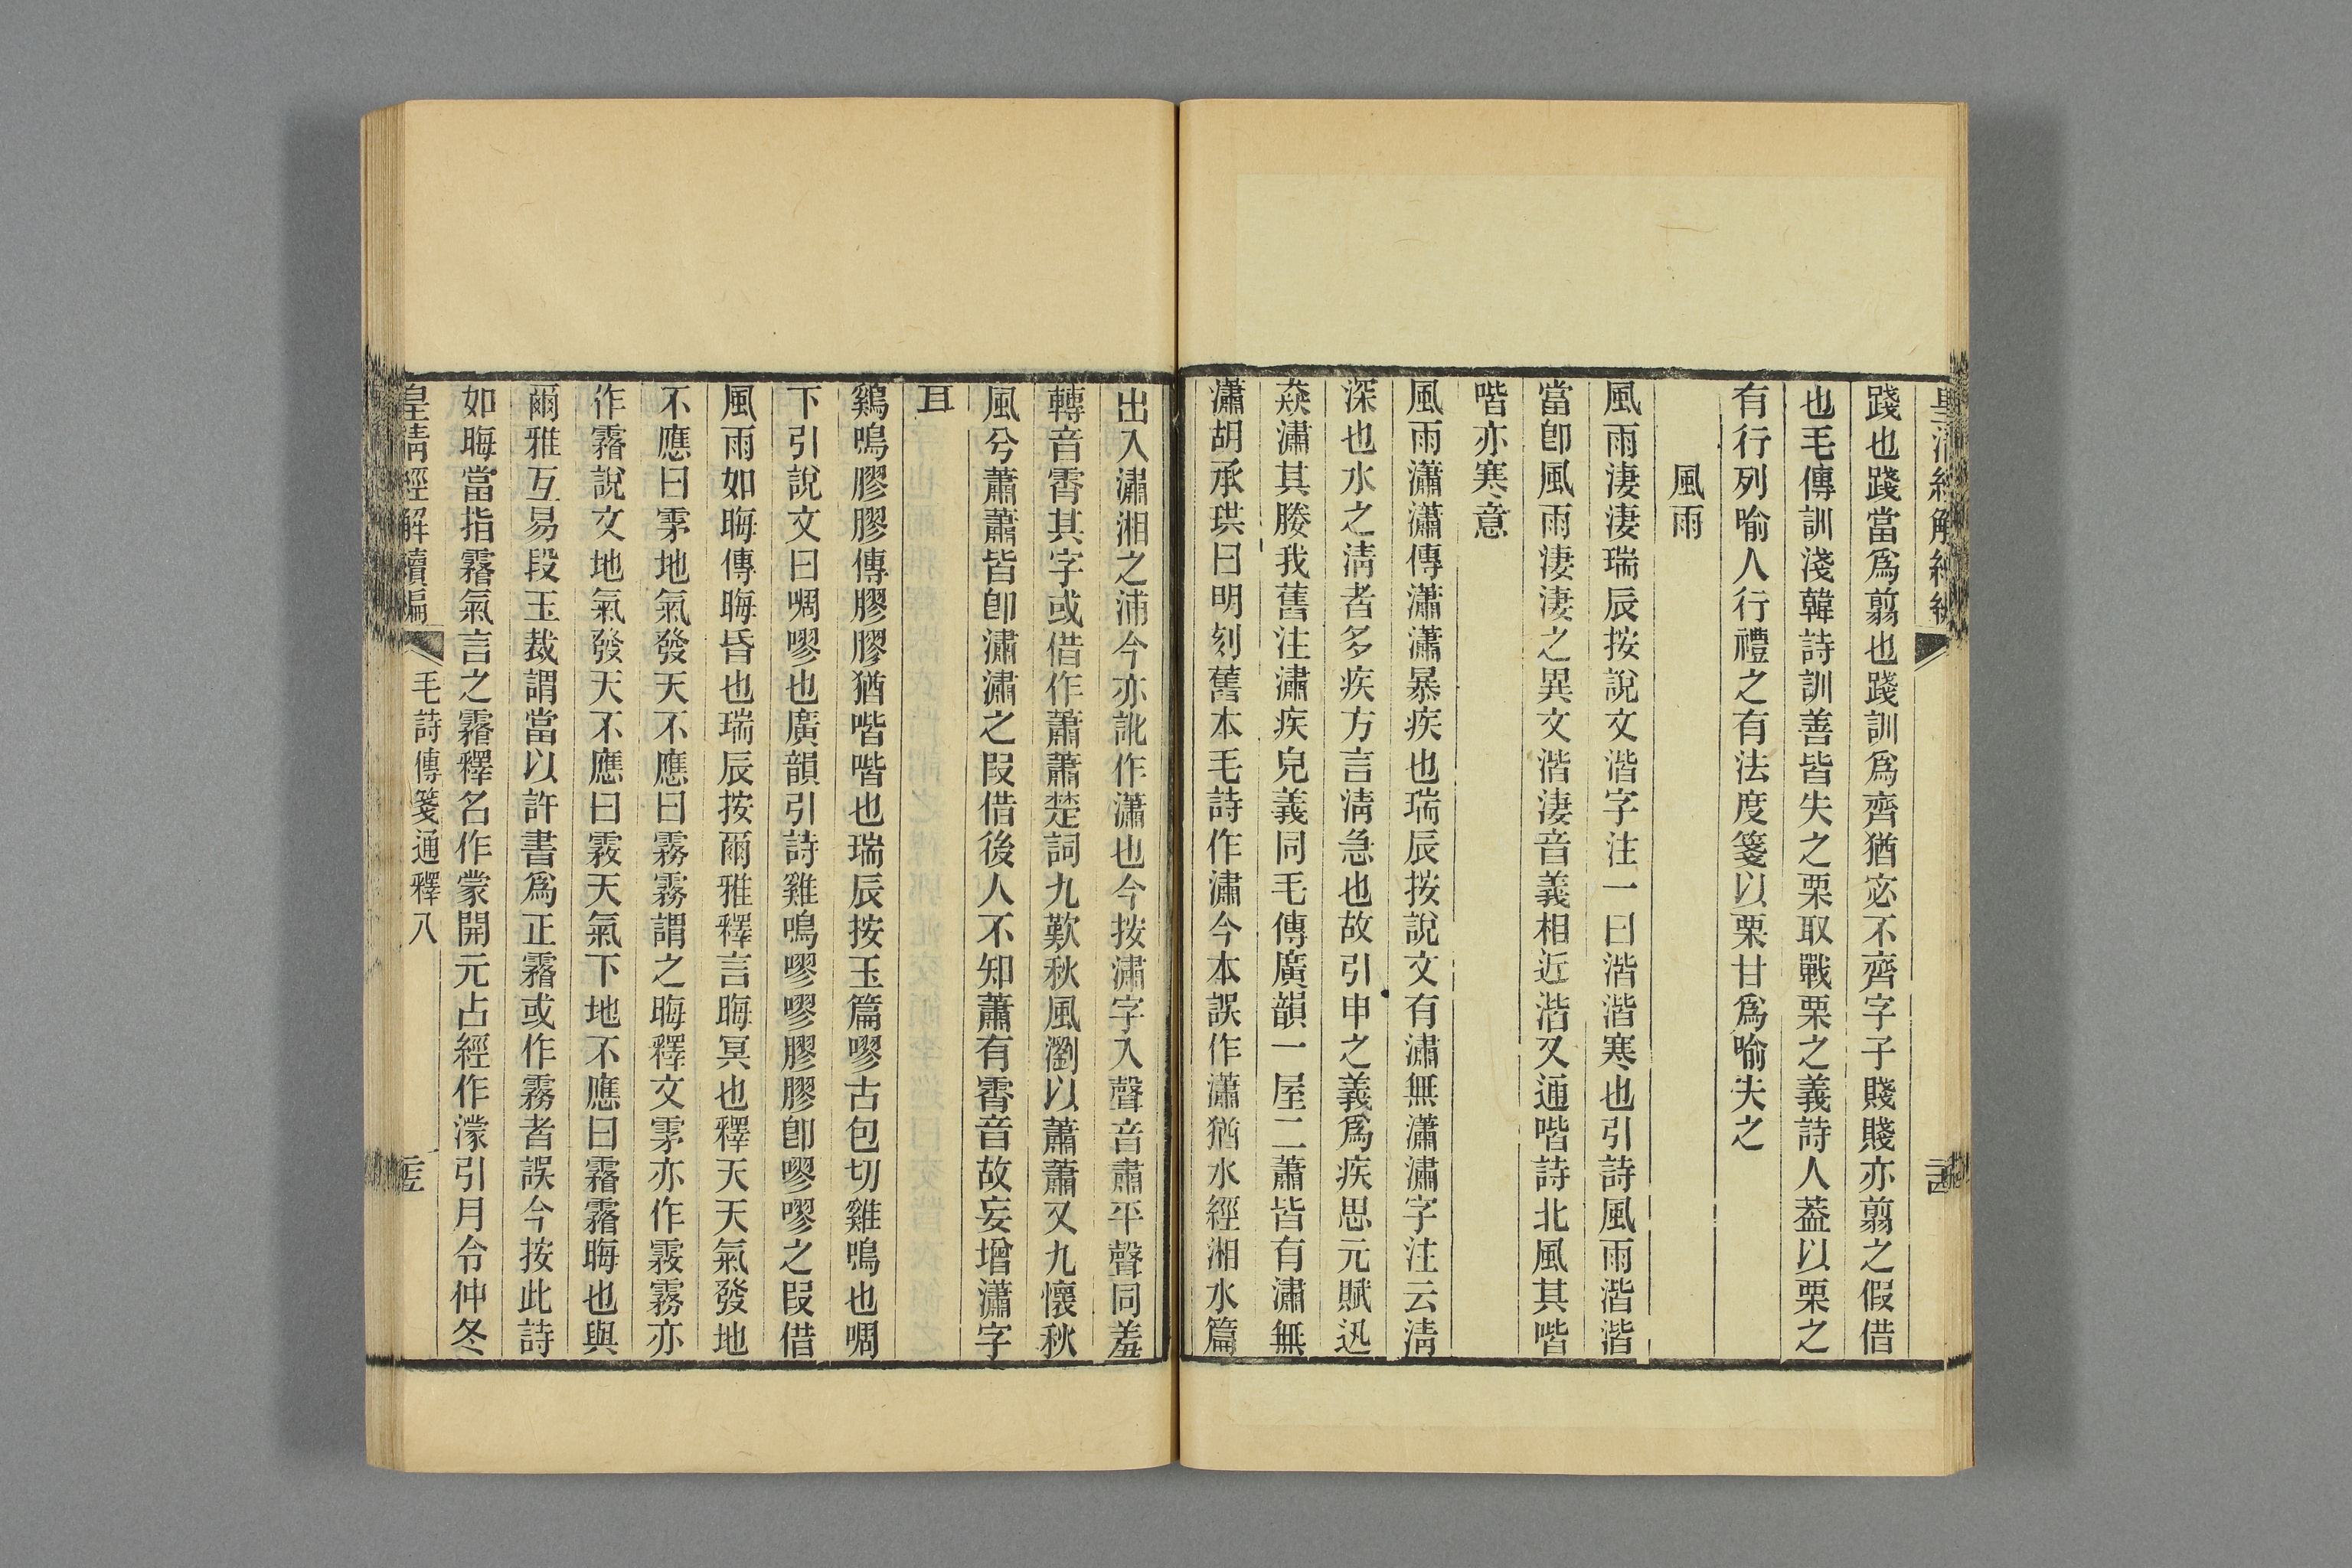 踐也踐當爲翦也踐訓爲齊猶宓不齊字子賤賤亦翦之假借
也毛傳訓淺韓詩訓善皆失之栗取戰栗之義詩人葢以栗之
有行列喻人行禮之有法度箋以栗甘爲喻失之
風雨
風雨淒淒瑞辰按說文湝字注一曰湝湝寒也引詩風雨湝湝
當卽風雨淒淒之異文湝淒音義相近湝又通喈詩北風其喈
喈亦寒意
風雨瀟瀟傳瀟瀟暴疾也瑞辰按說文有潚無瀟潚字注云淸
深也水之淸者多疾方言淸急也故引申之義爲疾思元賦迅
猋潚其媵我舊注潚疾皃義同毛傳廣韻一屋二蕭皆有潚無
瀟胡承珙曰明刻舊本毛詩作潚今本誤作瀟猶水經湘水篇
出入潚湘之浦今亦訛作瀟也今按潚字入聲音肅平聲同羞
轉音霄其字或借作蕭蕭楚詞九歎秋風瀏以蕭蕭又九懷秋
風兮蕭蕭皆卽潚潚之叚借後人不知蕭有霄音故妄增瀟字
耳
鷄鳴膠膠傳膠膠猶喈喈也瑞辰按玉篇嘐古包切雞鳴也啁
下引說文曰啁嘐也廣韻引詩雞鳴嘐嘐膠膠卽嘐嘐之叚借
風雨如晦傳晦昏也瑞辰按爾雅釋言晦冥也釋天天氣發地
不應曰雺地氣發天不應曰霧霧謂之晦釋文雺亦作霚霧亦
作霿說文地氣發天不應曰霚天氣下地不應曰霿霿晦也與
爾雅互易段玉裁謂當以許書爲正霿或作霧者誤今按此詩
如晦當指霿氣言之霿釋名作蒙開元占經作濛引月令仲冬
皇淸經解續編 毛詩傳箋通釋八